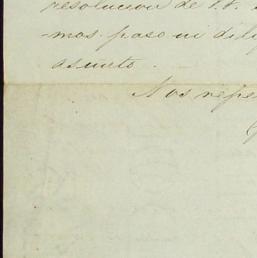 resolucion de V.
mas paso ni dili
asunto.
Nos repe